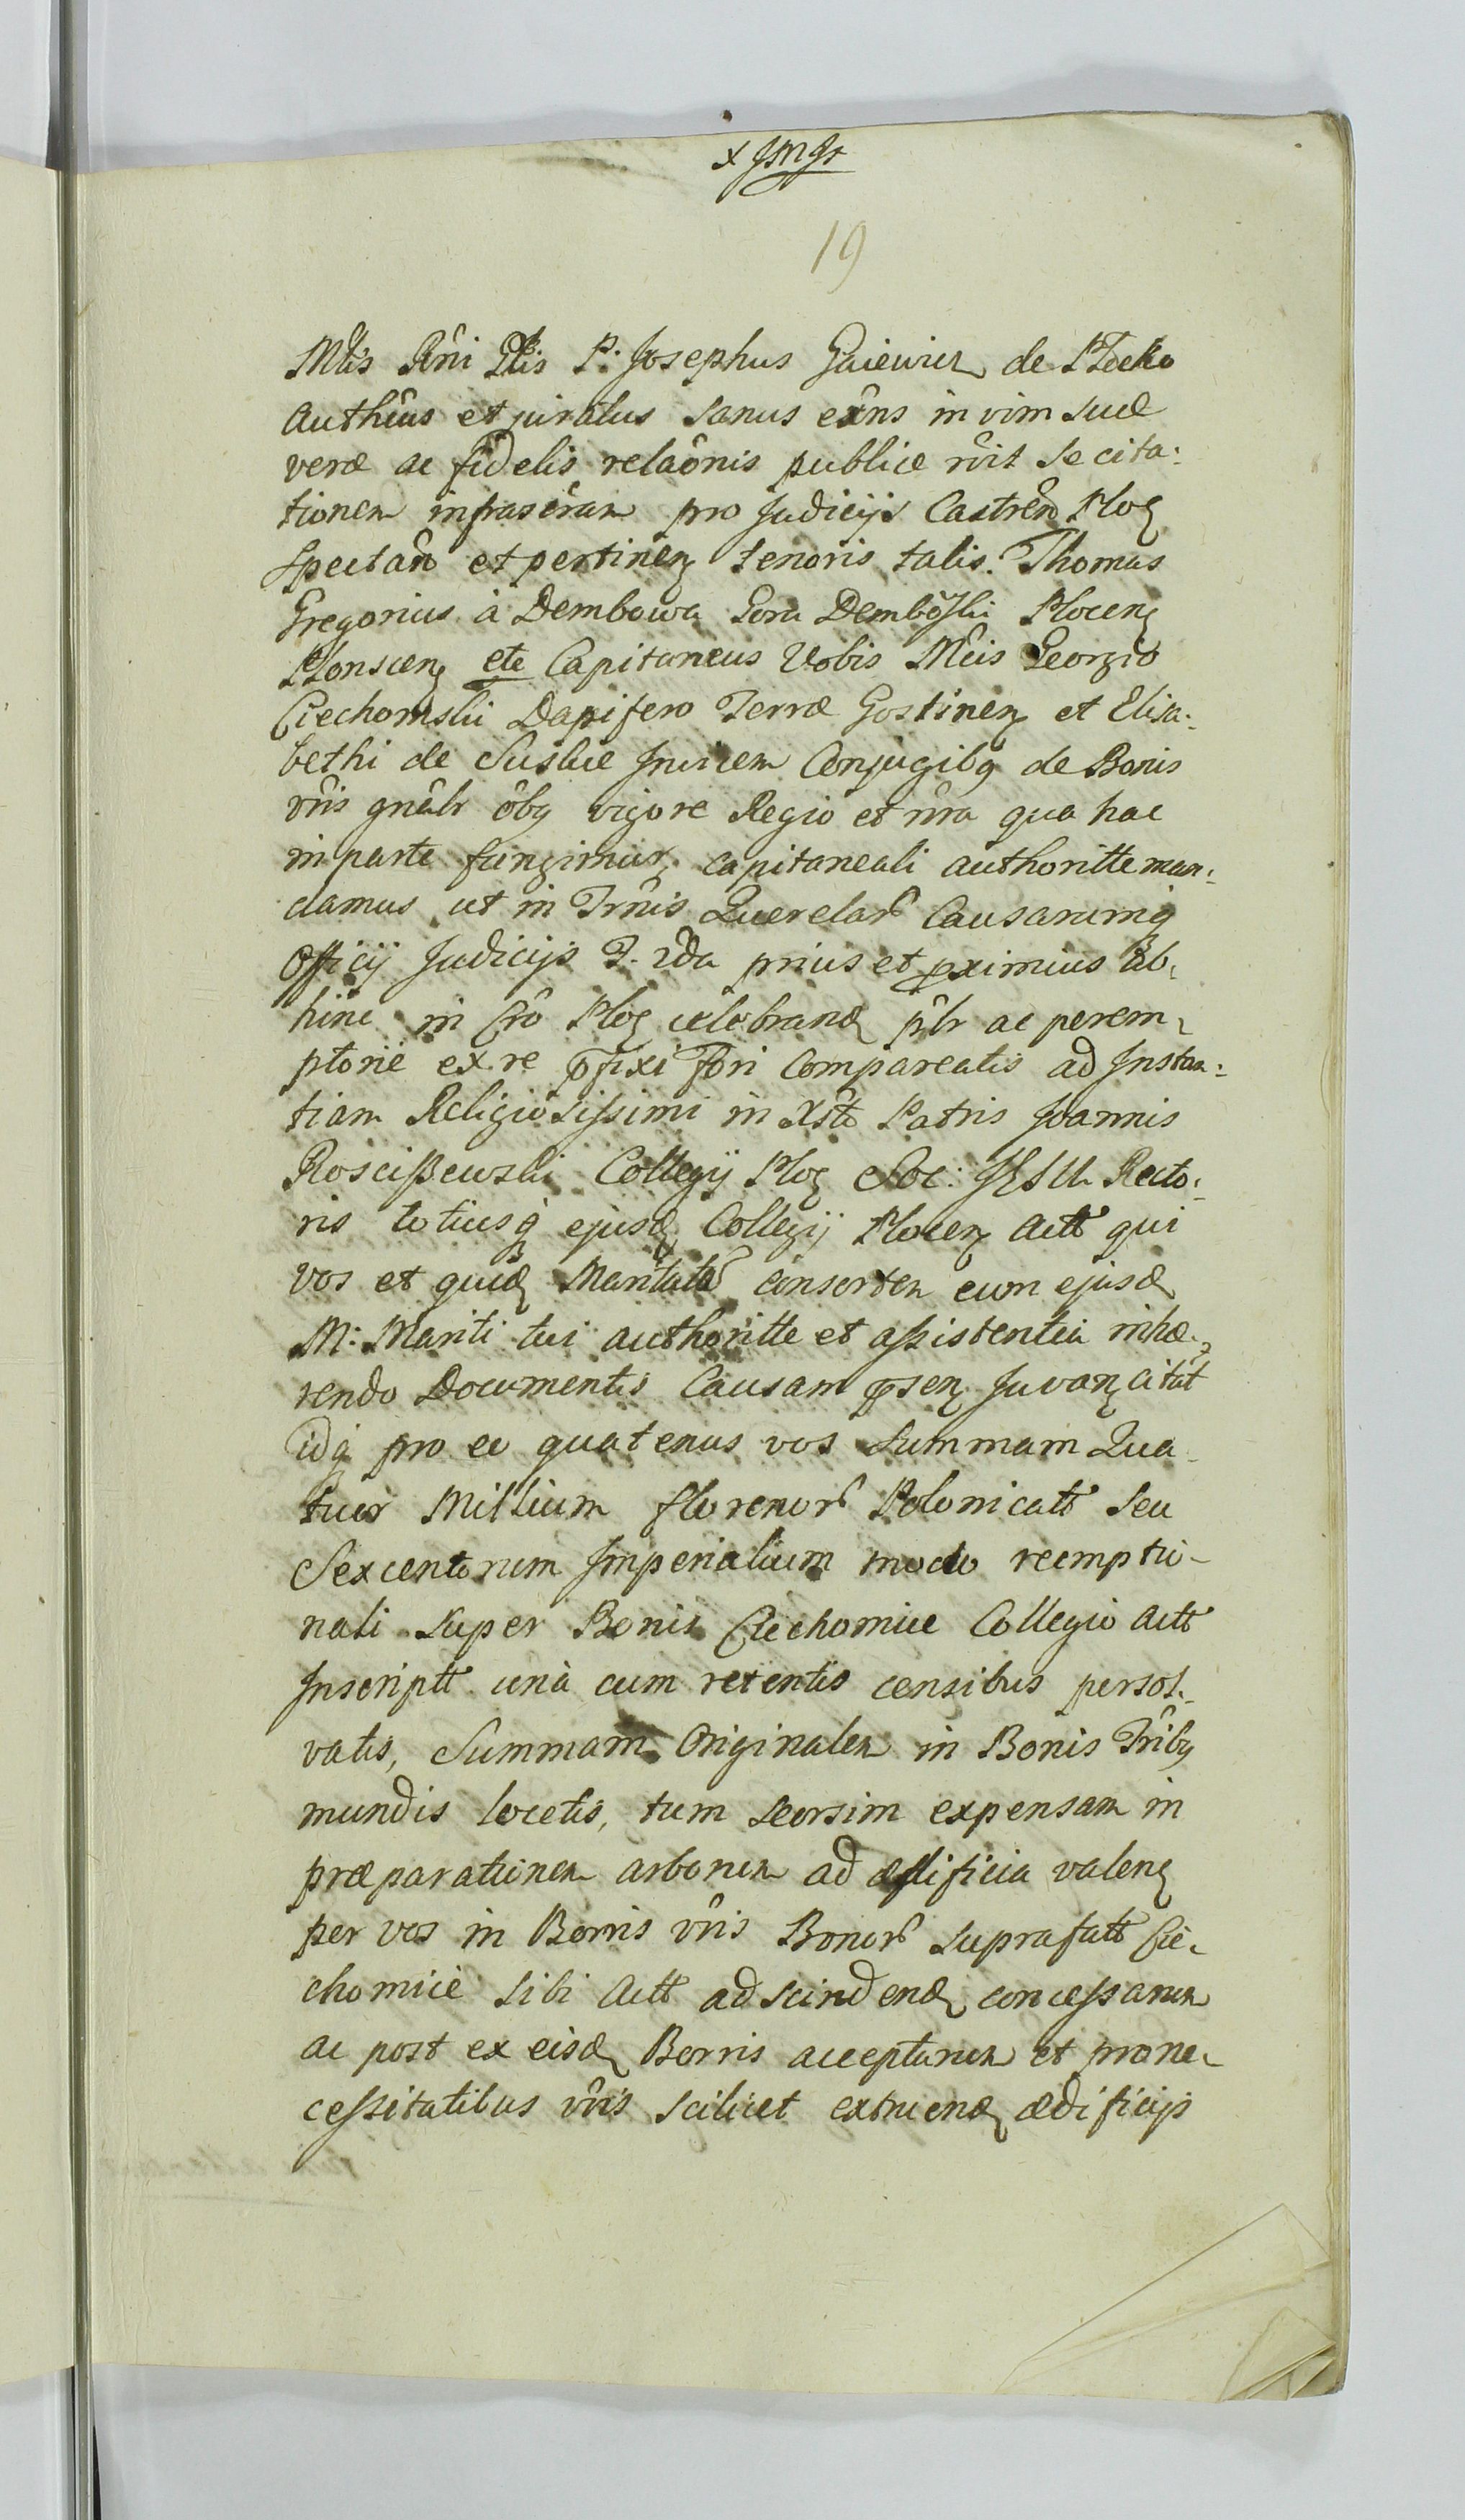 x JMJr
19
Mttis Rñi Gttis P. Josephus Gaiewicz de Plocko
Authêus et juratus sanus exñs in vim suæ
veræ ac fidelis relaônis publice rôit se cita:
tionem infrascram pro Judicijs Castren Ploc
spectañ et pertinen tenoris talis. Thomas
Gregorius à Dembowa Gora Dembôski Plocen
Plonscen etc Capitaneus Vobis Mcis Georgio
Ciechomski Dapifero Terræ Gostinen et Elisa:
bethi de Suskie Invicem Conjugibq de Bonis
vr̂is gnâlr ôbq vigore Regio et nr̂a qua hac
in parte fungimur capitaneali authoritte man:
damus ut in Trñis Querelar Causarumq
Officij Judicijs F. 2da prius et proximius ab:
hinc in Cro Ploc celebrand plr ac perem:
ptorie ex re pfixi fori Compareatis ad Instan:
tiam Religiosissimi in Xsto Patris Joannis
Roscißewski Collegij Ploc Soc: JESU Recto:
ris totiusq ejusd Collegij Plocen Actt qui
vos et quid Maritatâ consortem cum ejusd
M: Mariti tui authoritte et assistentia inhæ:
rendo Documentis Causam psen Juvan citat
idq pro eo quatenus vos Summam Qua
tuor Millium florenor Polonicatt seu
Sexcentorum Imperialium modo reemptio-
nali super Bonis Ciechomice Collegio Actt
Inscriptt unà cum retentis censibus persol:
vatis, Summam Originalem in Bonis Tribq
mundis locetis, tum seorsim expensam in
præparationem arborum ad ædificia valen
per vos in Borris vr̂is Bonor suprafatt Cie:
chomice sibi Actt ad scindend concessarum
ac post ex eisd Borris acceptarum et pro ne:
cessitatibus vr̂is scilicet extruend ædificijs